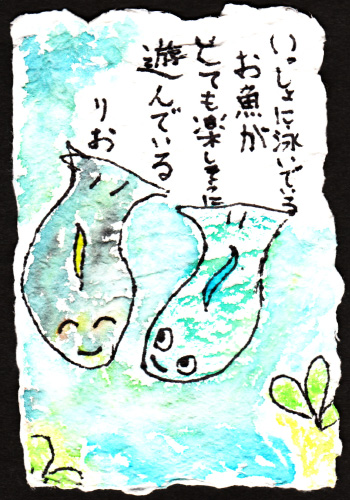 いっしょに泳いでいる
お魚が
とても楽しそうに
遊んでいる
りお